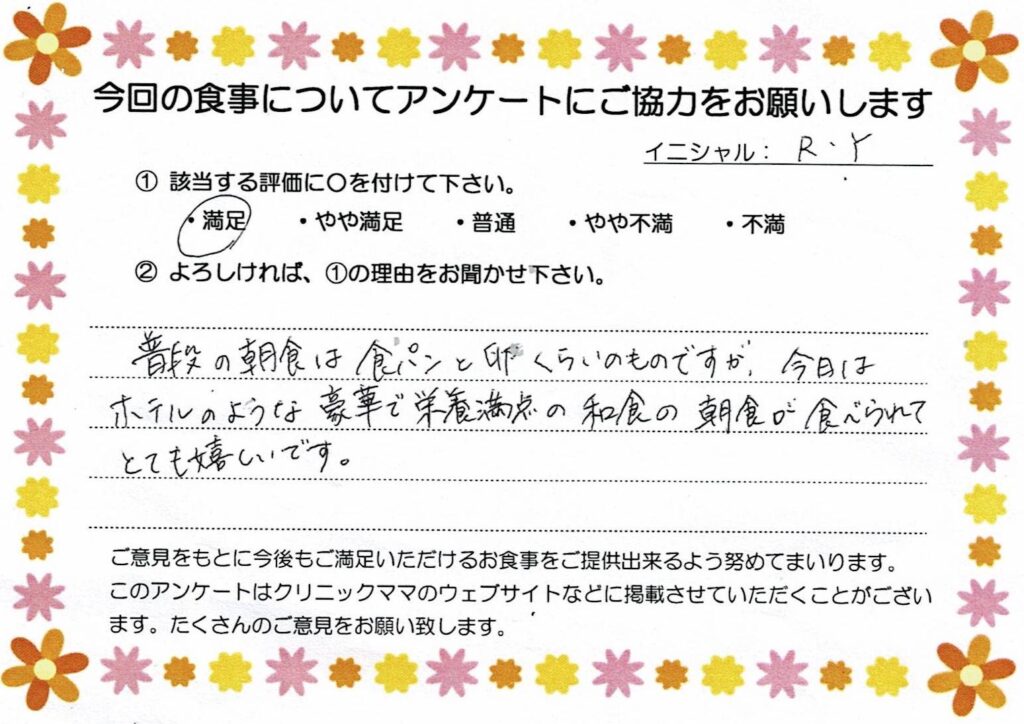 今回の食事についてアンケートにご協力をお願いします
イニシャル： R・Y
① 該当する評価に〇を付けて下さい。
・満足 ・やや満足 ・普通 ・やや不満 ・不満
② よろしければ、①の理由をお聞かせ下さい。
普段の朝食は食パンと卵くらいのものですが、今日は
ホテルのような豪華で栄養満点の和食の朝食が食べられて
とても嬉しいです。
ご意見をもとに今後もご満足いただけるお食事をご提供出来るよう努めてまいります。
このアンケートはクリニックママのウェブサイトなどに掲載させていただくことがござい
ます。たくさんのご意見をお願い致します。